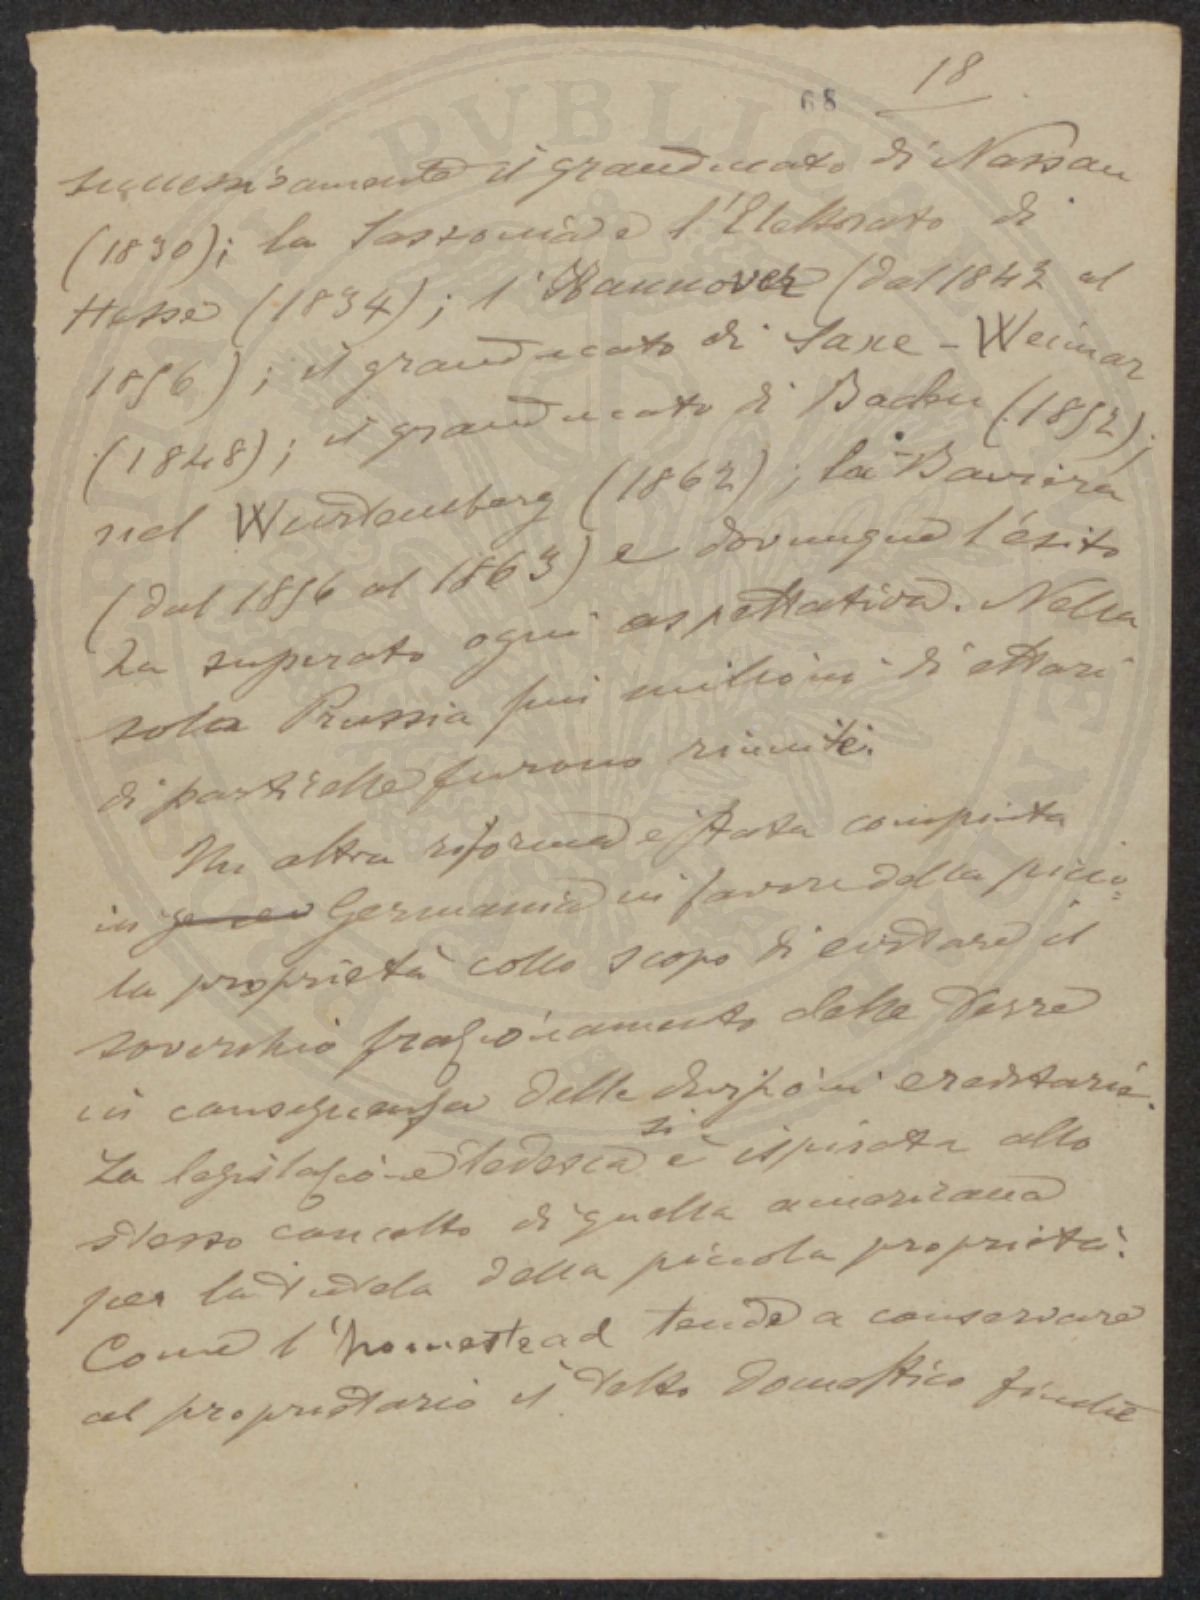 18
68
successivamente il granducato di Nassau
(1830); la Sassonia e l'Elettorato di
Hesse (1834); l'Hannover (dal 1842 al
1856); il granducato di Saxe-Weimar
(1848); il granducato di Baden (1852);
nel Wurtemberg (1862); la Baviera
(dal 1856 al 1863) e dovunque l'esito
ha superato ogni aspettativa. Nella
sola Prussia più milioni di ettari
di particelle furono riunite.
Un altra riforma è stata compiuta
in Germania in favore della picco=
la proprietà collo scopo di evitare il
soverchio frazionamento delle terre
in conseguenza delle divisioni ereditarie.
La legislazione tedesca si è ispirata allo
stesso concetto di quella americana
per la tutela della piccola proprietà.
Come l'homestead tende a conservare
al proprietario il tetto domestico finchè
PVBLICVM